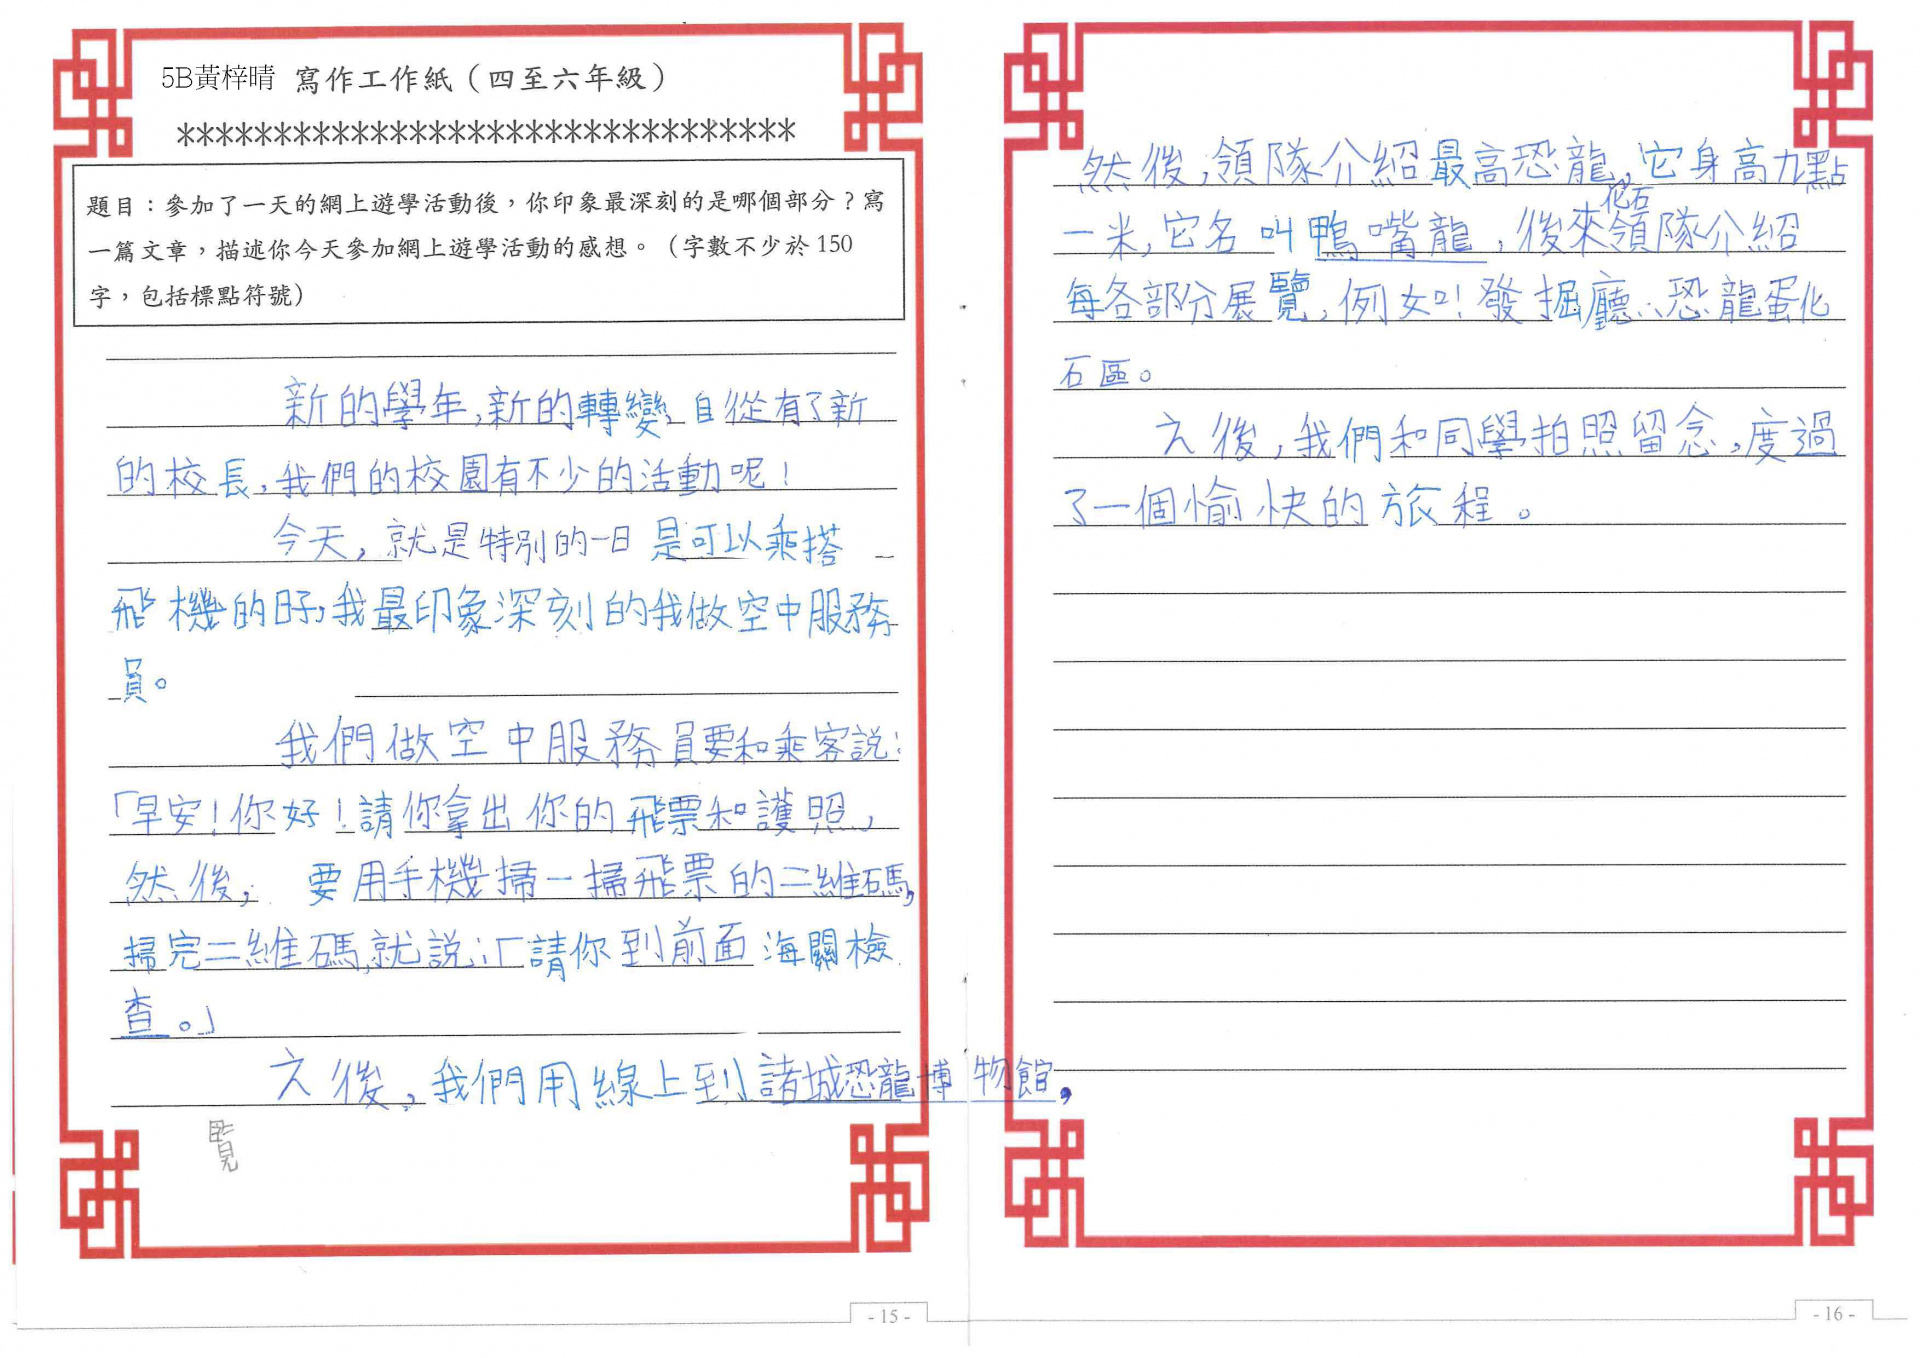 5B黃梓晴 寫作工作紙（四至六年級）
********************************
題目：參加了一天的網上遊學活動後，你印象最深刻的是哪個部分？寫
一篇文章，描述你今天參加網上遊學活動的感想。（字數不少於150
字，包括標點符號）
新的學年，新的轉變，自從有了新
的校長，我們的校園有不少的活動呢！
今天，就是特別的一日是可以乘搭
飛機的日子，我最印象深刻的我做空中服務
員。
我們做空中服務員要和乘客説：
「早安！你好！請你拿出你的飛票和護照」
然後，要用手機掃一掃飛票的二維碼，
掃完二維碼，就説：「請你到前面海關檢
查。」
之後，我們用線上到諸城恐龍博物館，
覽
- 15 -
然後，領隊介紹最高恐龍，它身高九點
化石
一米，它名叫鴨嘴龍，後來領隊介紹
每各部分展覽，例如：發掘廳、恐龍蛋化
石區。
之後，我們和同學拍照留念，度過
了一個愉快的旅程。
- 16 -